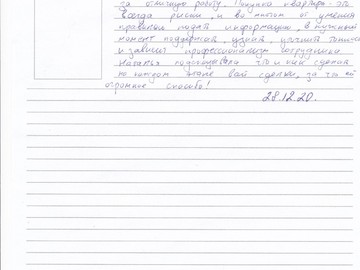 за отличную работу. Покупка квартиры - это
всегда риски, и во многом от умения
правильно подать информацию, в нужный
момент поддержать, узнав,
и зависит профессионализм сотрудника
Наталья подсказывала что и как сделать
на каждом этапе всей сделки, за что ей
огромное спасибо!
28.12.20.